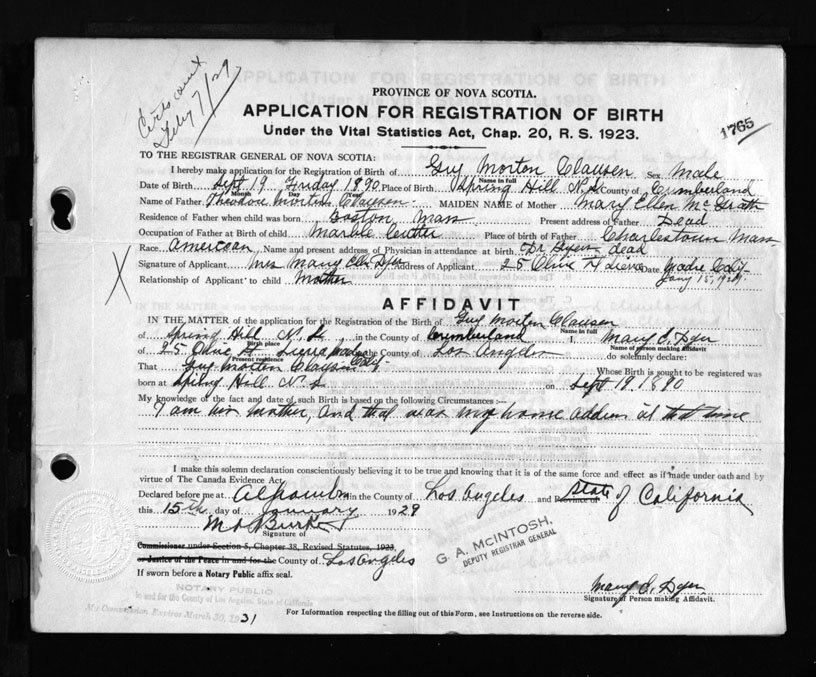 Feby 7/29
PROVINCE OF NOVA SCOTIA.
APPLICATION FOR REGISTRATION OF BIRTH
Under the Vital Statistics Act, Chap. 20, R. S. 1923.
1765
TO THE REGISTRAR GENERAL OF NOVA SCOTIA:
I hereby make application for the Registration of Birth of Guy Morton Clausen Sex Male
Name in full
Date of Birth Sept 19 Friday 1890 Place of Birth Spring Hill N.S. County of Cumberland
Month Day Year
Name of Father Theodore Morton Clausen MAIDEN NAME of Mother Mary Ellen McGrath
Residence of Father when child was born Boston Mass Present address of Father Dead
Occupation of Father at Birth of child Marble Cutter Place of birth of Father Charlestown Mass
Race American Name and present address of Physician in attendance at birth Dr Dyer dead
Signature of Applicant Mrs Mary Dyer Address of Applicant 25 Olive St Sierra Madre Date
Relationship of Applicant to child Mother Jany 15, 1929
AFFIDAVIT
IN THE MATTER of the application for the Registration of the Birth of Guy Morton Clausen
Name in full
of Spring Hill N. S. in the County of Cumberland I, Mary E. Dyer
Birth place Name of person making Affidavit
of 25 Olive St. Sierra Madre in the County of Los Angeles do solemnly declare:
Present residence
That Guy Morton Clausen Whose Birth is sought to be registered was
born at Spring Hill N. S on Sept 19. 1890
My knowledge of the fact and date of such Birth is based on the following Circumstances :—
I am his mother, and that was my home address at that time
I make this solemn declaration conscientiously believing it to be true and knowing that it is of the same force and effect as if made under oath and by
virtue of The Canada Evidence Act.
Declared before me at Alhambra in the County of Los Angeles and Province of State of California
this 15th day of January 1929
Signature of
G. A. McINTOSH,
DEPUTY REGISTRAR GENERAL
Commissioner under Section 5, Chapter 38, Revised Statutes, 1923,
or Justice of the Peace in and for the County of Los Angeles
If sworn before a Notary Public affix seal.
Mary E. Dyer
Signature of Person making Affidavit.
NOTARY PUBLIC
In and for the County of Los Angeles, State of California
My Commission Expires March 30, 1931
For Information respecting the filling out of this Form, see Instructions on the reverse side.